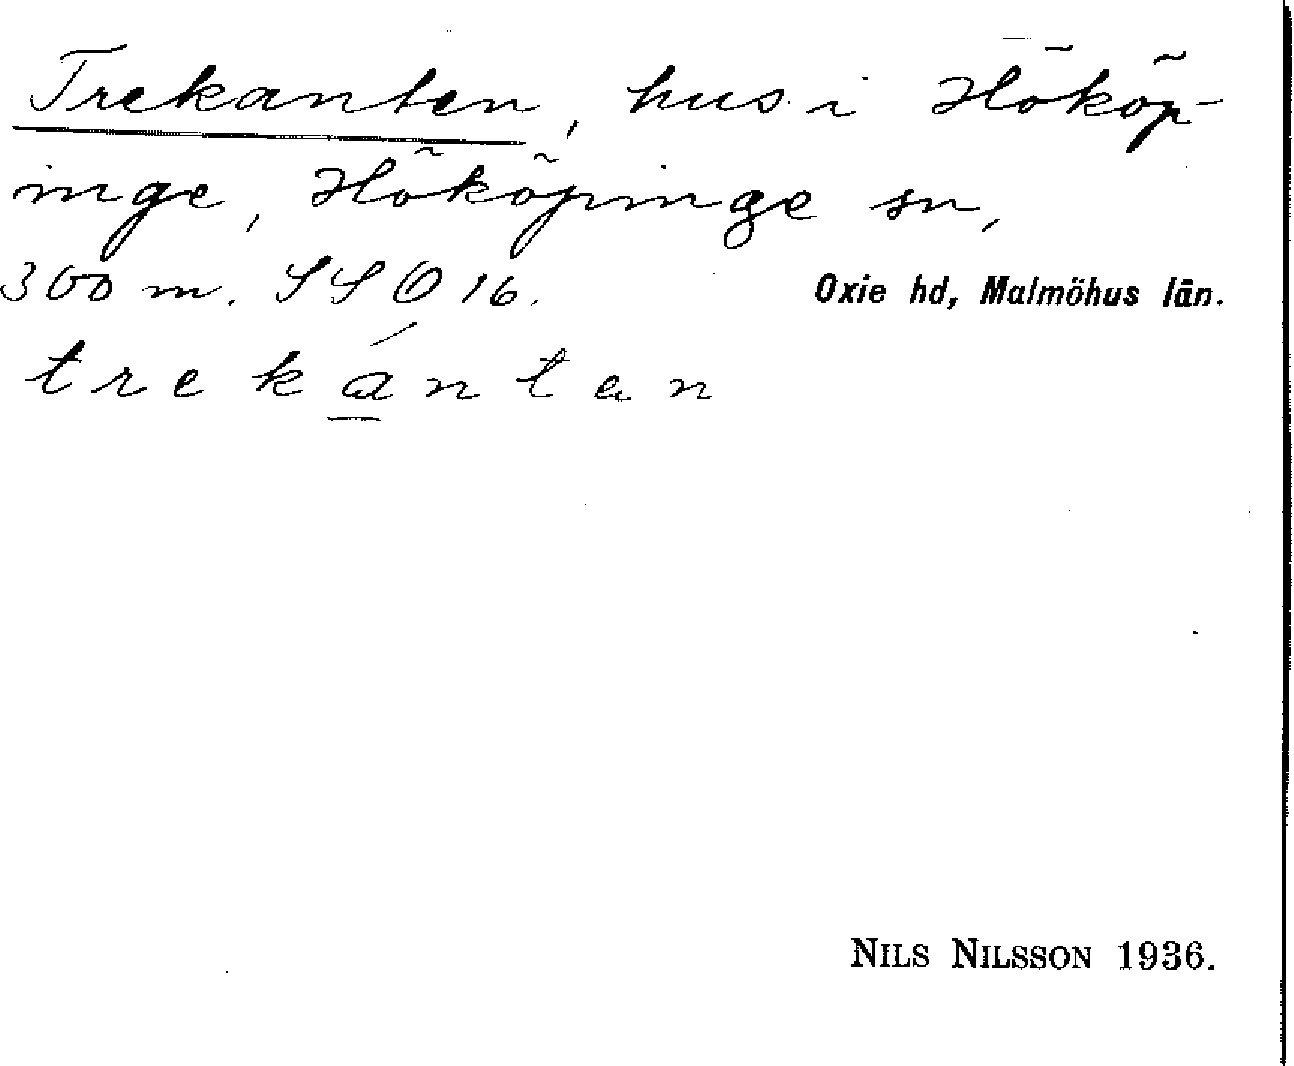 Trekanten, hus i Hököp-
inge, Hököpinge sn,
300 m. SSO 16.
Oxie hd, Malmöhus län.
trekántan
NILS NILSSON 1936.